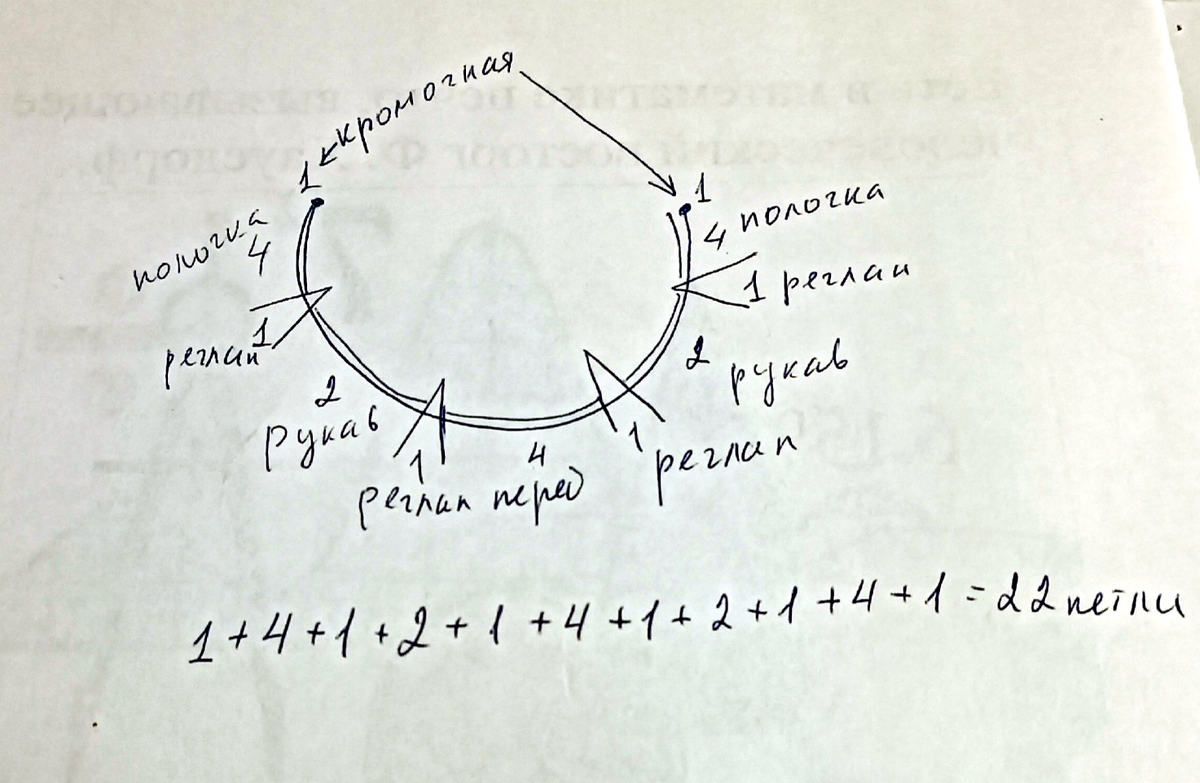 кромочная
1
1
полочка
4
4 полочка
1
реглан
1 реглан
2
рукав
2
рукав
1
реглан
4
перед
1
реглан
1 + 4 + 1 + 2 + 1 + 4 + 1 + 2 + 1 + 4 + 1 = 22 петли